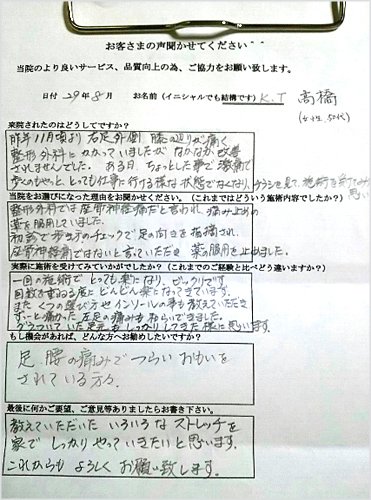 お客さまの声聞かせてください^^
当院のより良いサービス、品質向上の為、ご協力をお願い致します。
日付 29年8月 お名前(イニシャルでも結構です) K.T 高橋
(女性、50代)
来院されたのはどうしてですか?
昨年11月頃より右足外側 膝の辺りが痛く
整形外科にかかっていましたがなかなか改善
されませんでした。ある日ちょっとした事で激痛で
歩くのもやっと、とっても仕事に行ける様な状態でなくなり、チラシを見て、施術を受けたいと
思い
当院をお選びになった理由をお聞かせください。(これまではどういう施術内容でしたか?)
整形外科では座骨神経痛だと言われ、痛み止め
薬を服用していました。
初診で歩き方のチェックで足の向きを指摘され、
座骨神経痛ではないと言っていただき 薬の服用を止めました。
実際に施術を受けてみていかがでしたか?(これまでのご経験と比べどう違いますか?)
一回の施術で とっても楽になり、ビックリです。
回数を重ねる度にどんどん楽になってきています。
また くつの履き方やインソールの事も教えていただき
ずっと痛かった 左足の痛みも和らいできました。
グラついていた足元も しっかりしてきた様に思います。
もし機会があれば、どんな方へお勧めしたいですか?
足腰の痛みでつらいおもいを
されている方々。
最後に何かご要望、ご意見等ありましたらお書き下さい。
教えていただいた いろいろな ストレッチを
家で しっかり やっていきたいと思います。
これからも よろしく お願い致します。